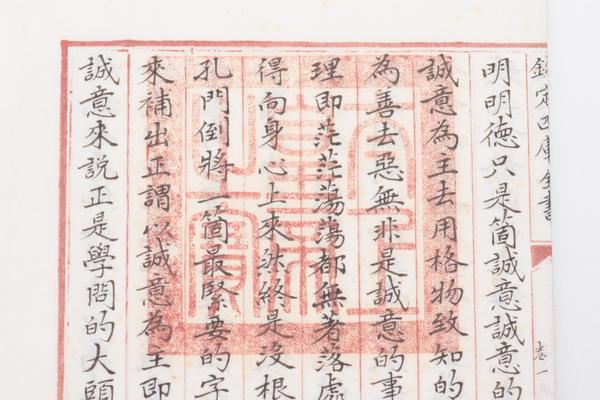 欽定四庫全書
卷一
明明徳只是箇誠意誠意的
誠意為主去用格物致知的
為善去惡無非是誠意的事
理即茫茫蕩蕩都無著落處
得向身心上來然終是没根
孔門倒將一箇最緊要的字
來補出正謂以誠意為主即
誠意來説正是學問的大頭